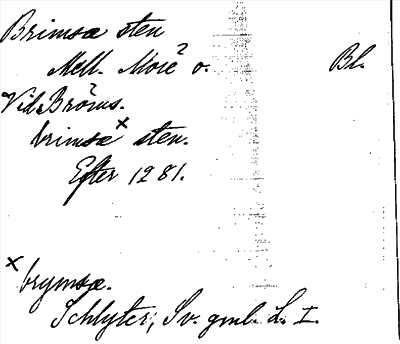 Brimsæ sten
Mell. More? o. Bl.
Vid. Bröms.
brimsæ x sten.
Efter 1281.
x brymsæ.
Schlyter, Sv. gml. L. I.